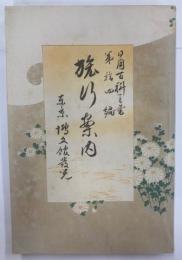 日用百科全書
第拾四編
旅行案内
東京 博文館蔵版